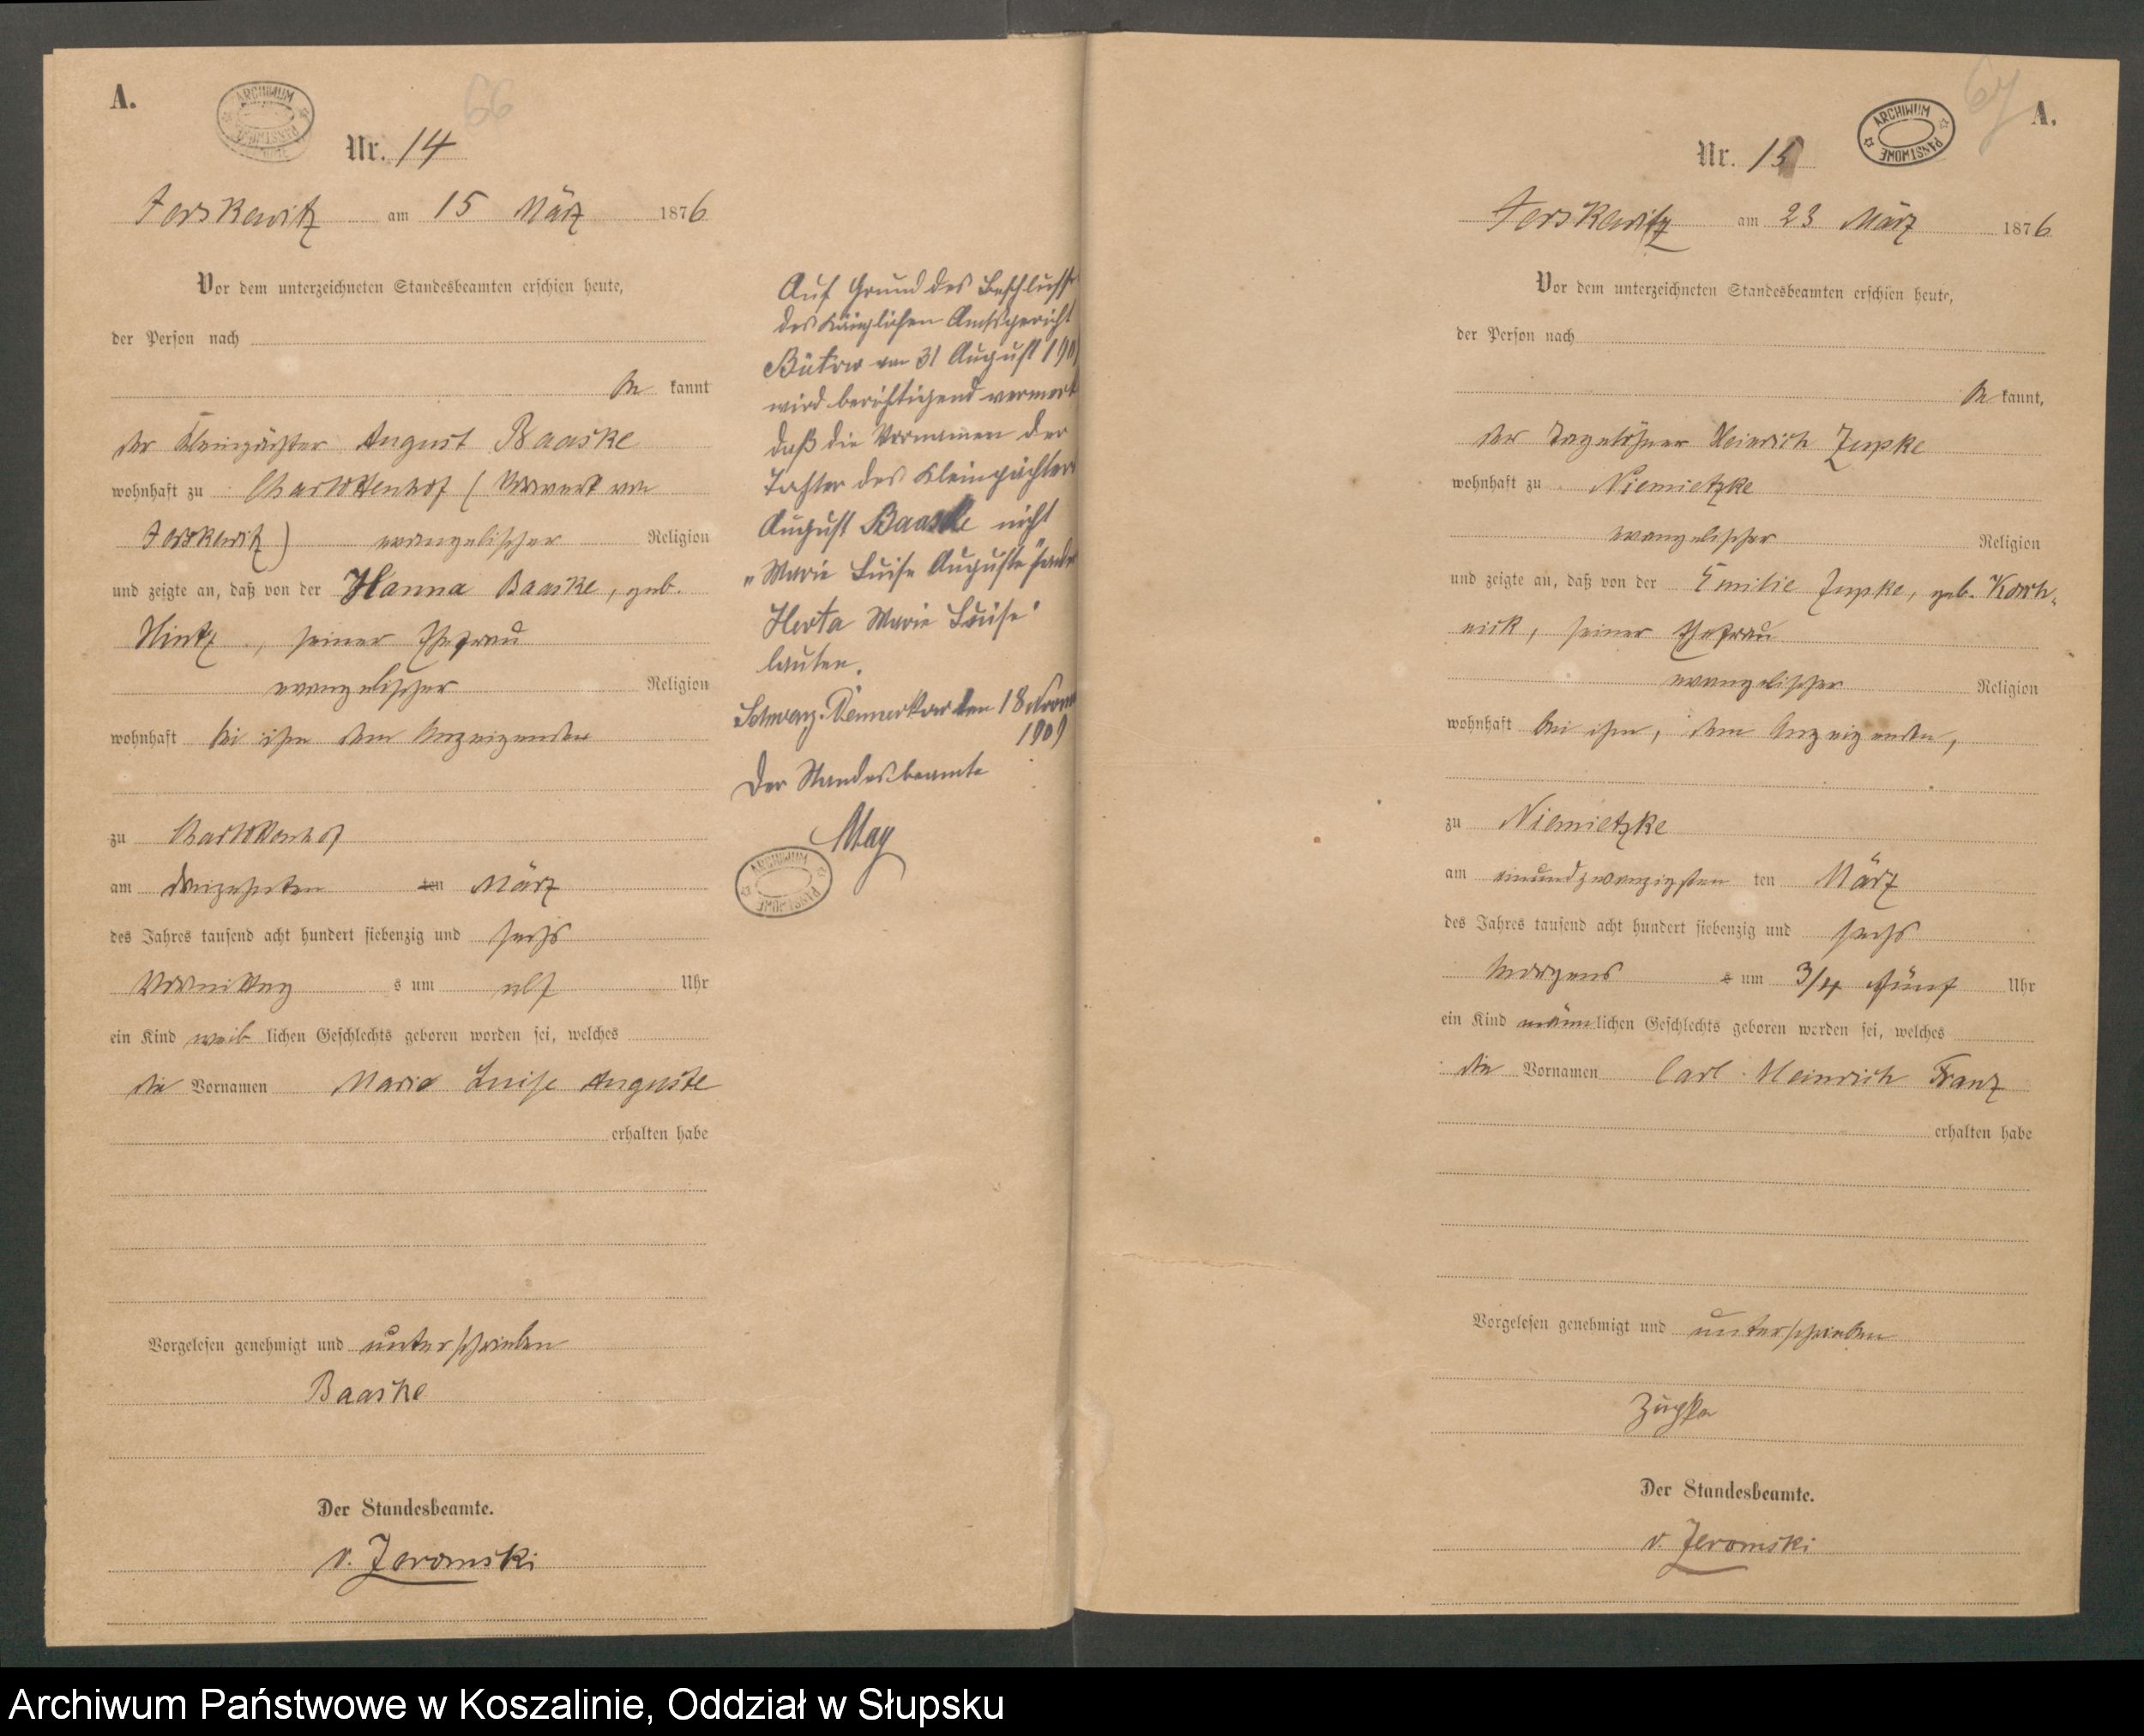 A.
ARCHIWUM PAŃSTWOWE
66
Nr. 14
Jerskewitz am 15 März 1876
Vor dem unterzeichneten Standesbeamten erschien heute,
der Person nach
be kannt
der Kleinpächter August Baaske
wohnhaft zu Charlottenhof (Vorwerk von
Jerskewitz) evangelischer Religion
und zeigte an, daß von der Hanna Baaske, geb.
Hintz, seiner Ehefrau
evangelischer Religion
wohnhaft bei ihm dem Anzeigenden
zu Charlottenhof
am dreizehnten ten März
des Jahres tausend acht hundert siebenzig und sechs
Vormittag s um elf Uhr
ein Kind weib lichen Geschlechts geboren worden sei, welches
die Vornamen Marie Luise Auguste
erhalten habe
Vorgelesen genehmigt und unterschrieben
Baaske
Der Standesbeamte.
v. Jeromski
Auf Grund des Beschlusses
des Königlichen Amtsgericht
Bütow vom 31 August 190
wird berichtigend vermerkt
daß die Vornamen der
Tochter des Kleinpächters
August Baaske nicht
"Marie Luise Auguste" sondern
Herta Marie Luise"
lauten.
Schwarz-Damerkow den 18
1909
Der Standesbeamte
May
ARCHIWUM PAŃSTWOWE
67
A.
ARCHIWUM PAŃSTWOWE
Nr. 15
Jerskewitz am 23 März 1876
Vor dem unterzeichneten Standesbeamten erschien heute,
der Person nach
be kannt,
der Tagelöhner Heinrich Zupke
wohnhaft zu Niemietzke
evangelischer Religion
und zeigte an, daß von der Emilie Zupke, geb.
seiner Ehefrau
evangelischer Religion
wohnhaft bei ihm, dem Anzeigenden,
zu Niemietzke
am einundzwanzigsten ten März
des Jahres tausend acht hundert siebenzig und sechs
Morgens s um 3/4 fünf Uhr
ein Kind männ lichen Geschlechts geboren worden sei, welches
die Vornamen Carl Heinrich Franz
erhalten habe
Vorgelesen genehmigt und unterschrieben
Zupke
Der Standesbeamte.
v. Jeromski
Archiwum Państwowe w Koszalinie, Oddział w Słupsku